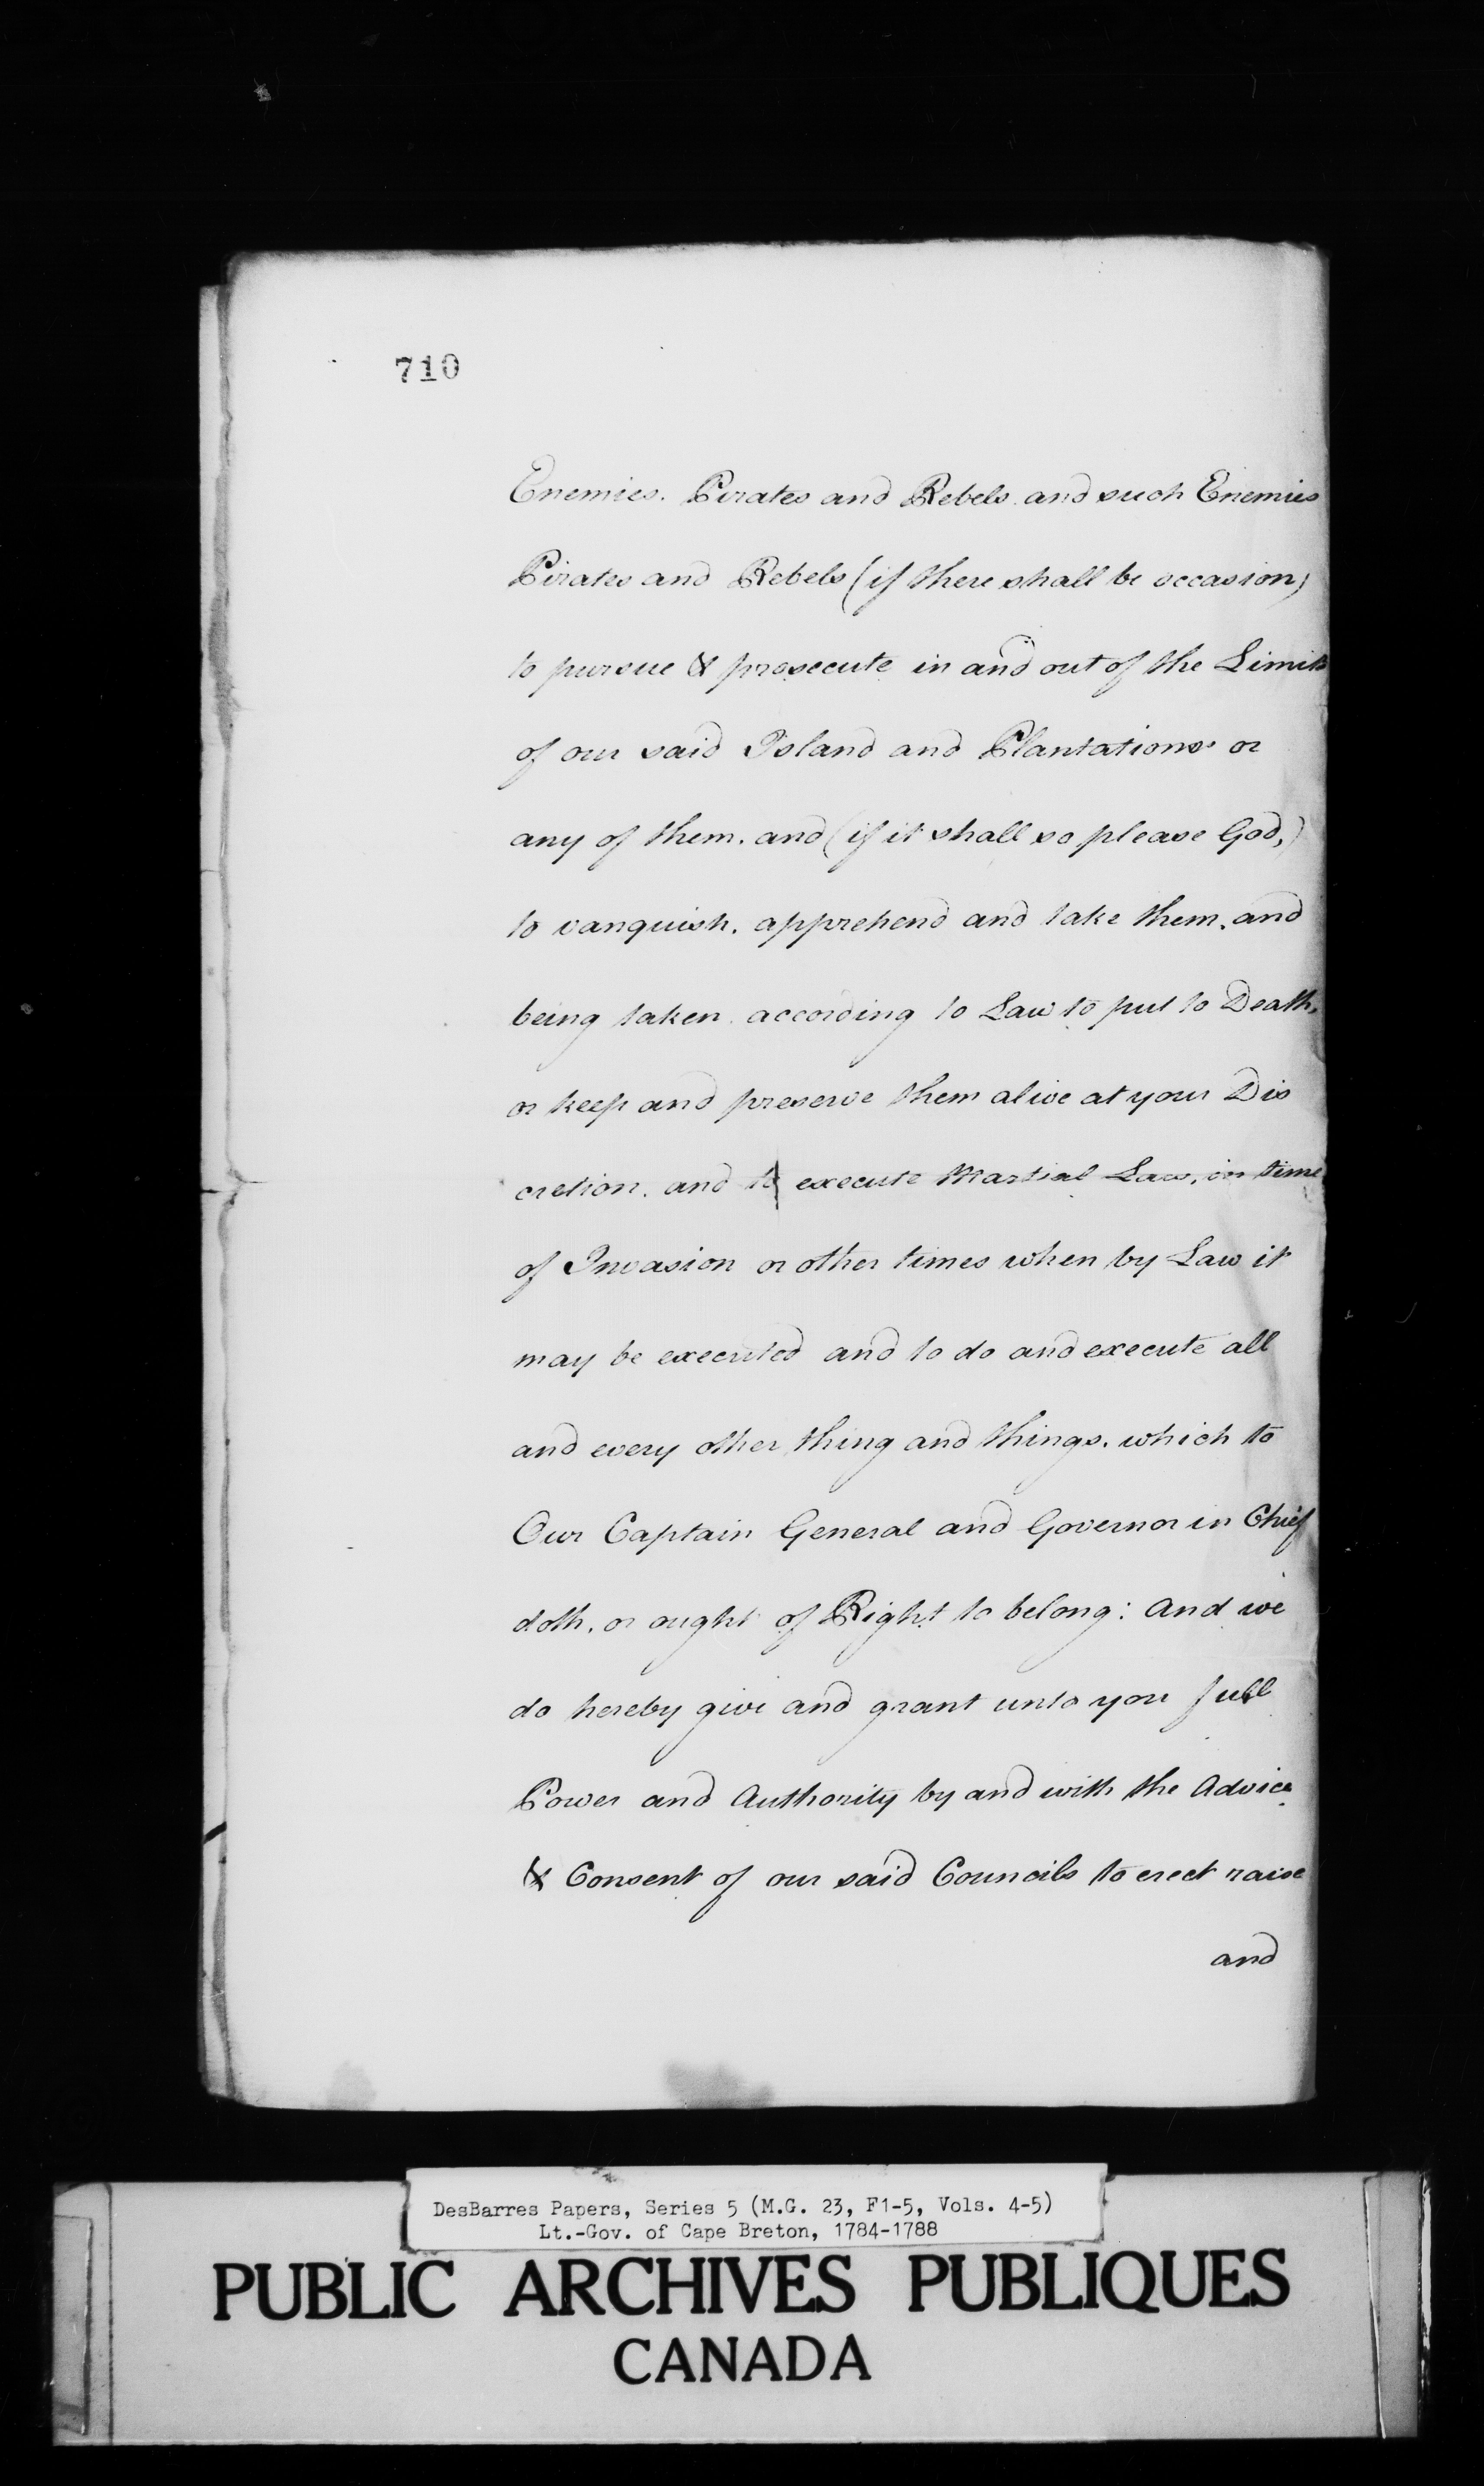 710
Enemies. Pirates and Rebels. and such Enemies
Pirates and Rebels (if there shall be occasion)
to pursue & prosecute in and out of the Limits
of our said Island and Plantations or
any of them. and (if it shall so please God,)
to vanquish. apprehend and take them. and
being taken. according to Law to put to Death,
or keep and preserve them alive at your Dis
cretion. and to execute Martial Law, in time
of Invasion or other times when by Law it
may be executed and to do and execute all
and every other thing and things. which to
Our Captain General and Governor in Chief
doth. or ought of Right to belong: And we
do hereby give and grant unto you full
Power and Authority by and with the Advice
& Consent of our said Councils to erect raise
and
DesBarres Papers, Series 5 (M.G. 23, F1-5, Vols. 4-5)
Lt.-Gov. of Cape Breton, 1784-1788
PUBLIC ARCHIVES PUBLIQUES
CANADA